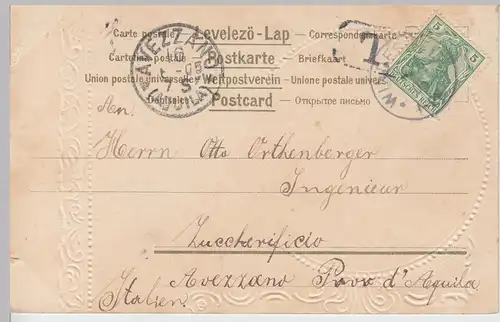 Carte postale Levelezö-Lap Correspondenzkarte
Cartolina postale Postkarte Briefkaart
Union postale universelle Weltpostverein Unione postale univers
Dopisnice Postcard Открытое письмо
AVEZZANO
16
05
(AQUILA)
T
5
5
WI
An.
Herrn Otto Orthenberger
Ingenieur
Zuccherificio
Avezzano Prov d'Aquila
Italien.